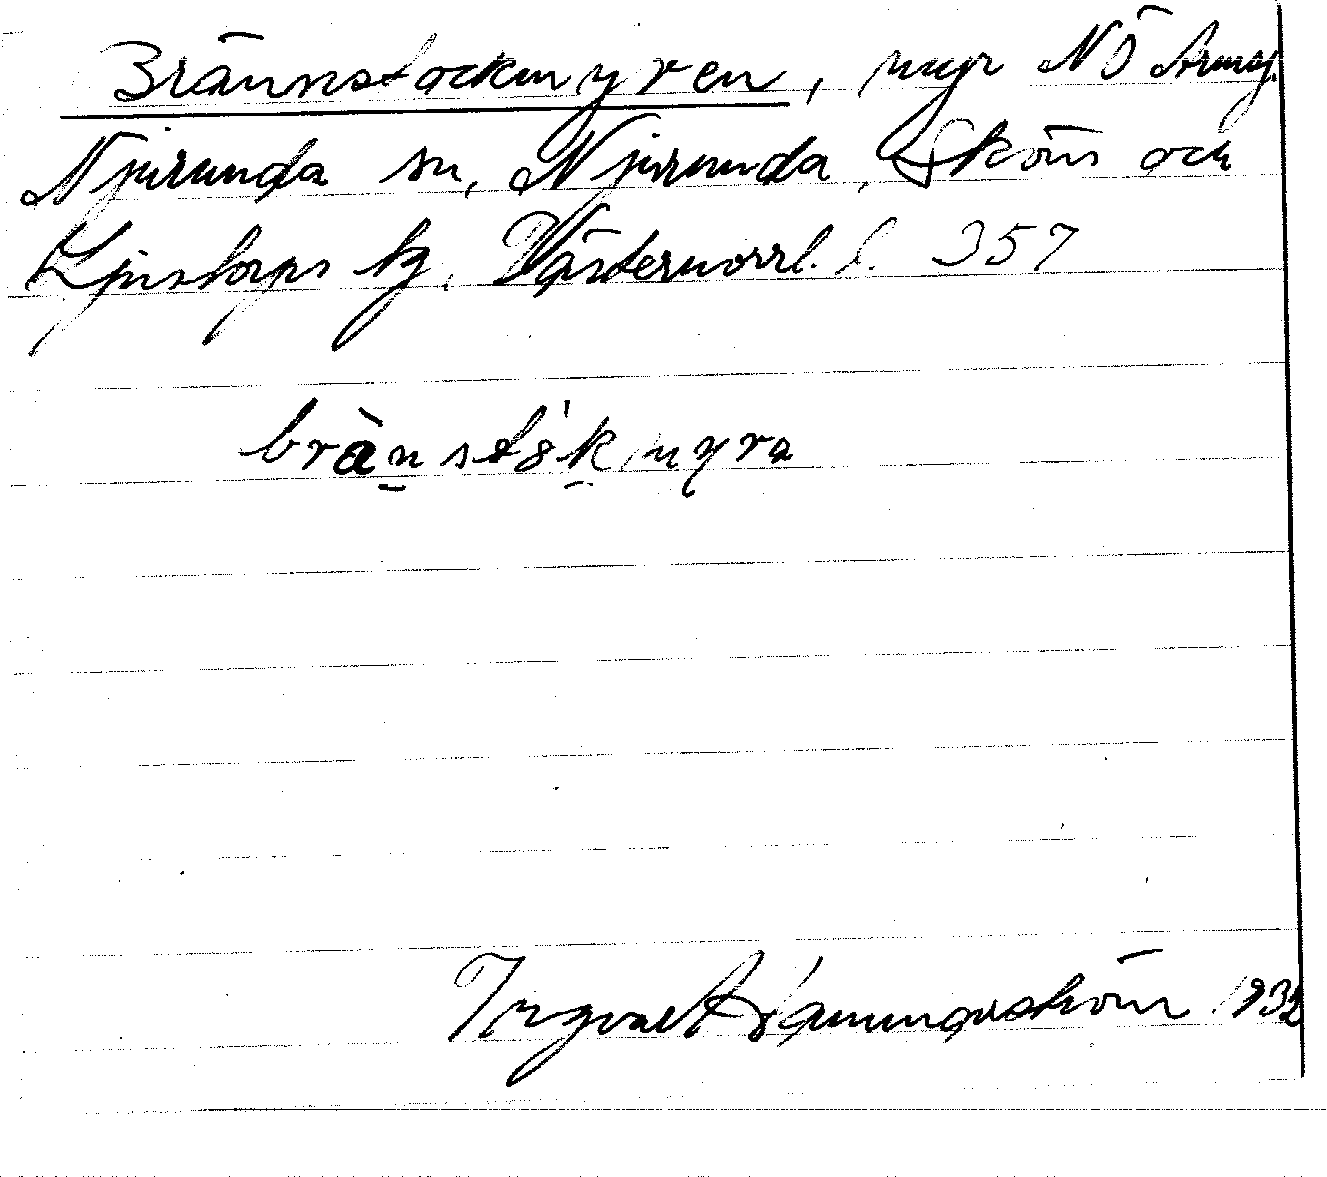 Brännstockmyren, myr NÖ Armsj.
Njurunda sn, Njurunda, Sköns och
Ljustorps tg, Västernorrl. l. 357
brànstók myra
Ingvald Hammarström 1932